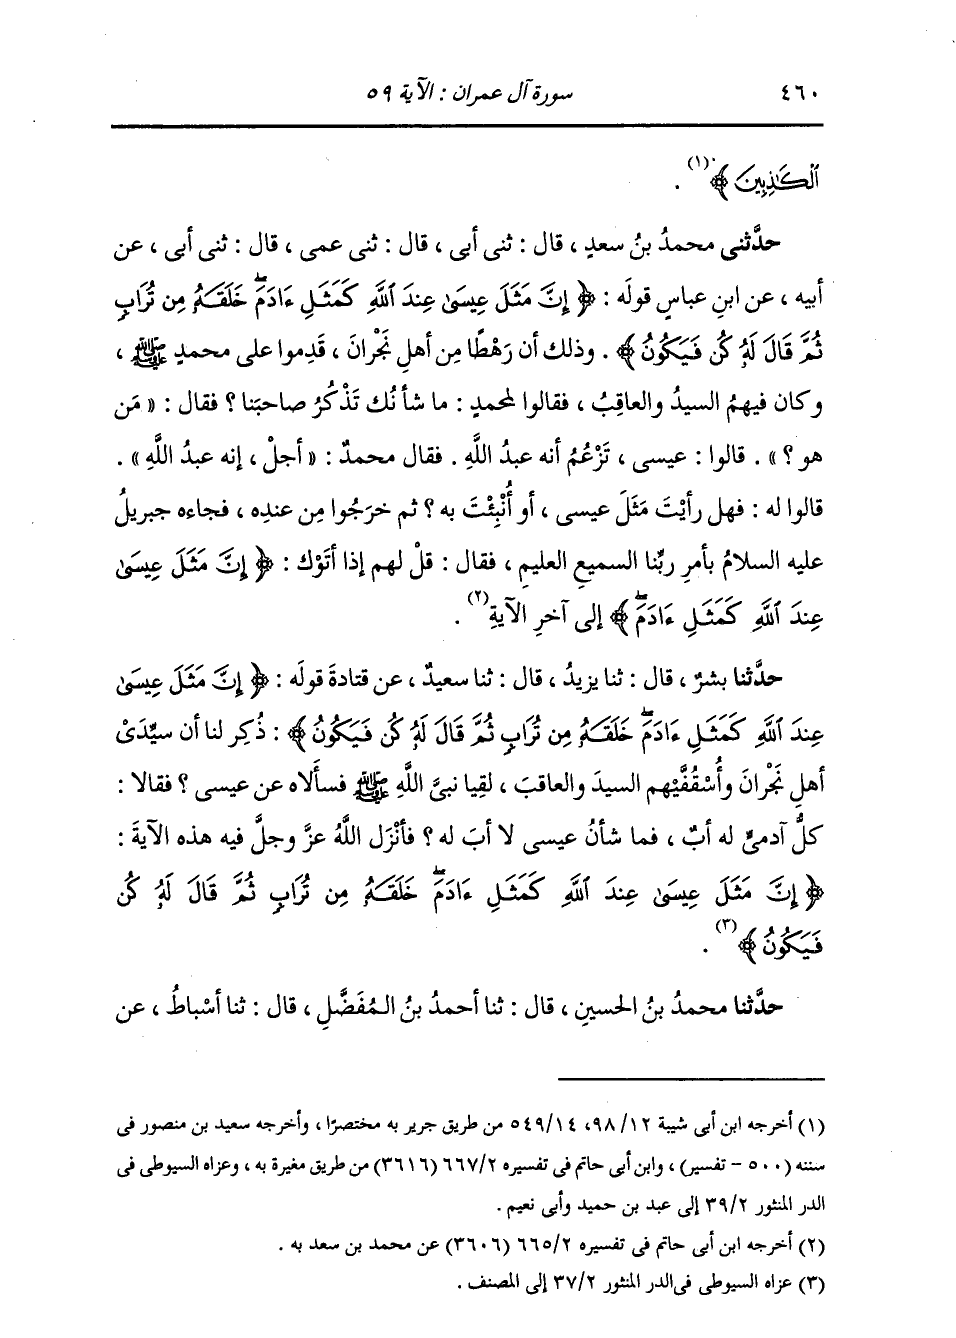 ٤٦٠ سورة آل عمران : الآية ٥٩
ٱلْكَـٰذِبِينَ ﴾(١) .
حدَّثنى محمدُ بنُ سعدٍ ، قال : ثنى أبى ، قال : ثنى عمى ، قال : ثنى أبى ، عن
أبيه ، عن ابنِ عباسٍ قولَه : ﴿ إِنَّ مَثَلَ عِيسَىٰ عِندَ ٱللَّهِ كَمَثَلِ ءَادَمَ ۖ خَلَقَهُۥ مِن تُرَابٍ
ثُمَّ قَالَ لَهُۥ كُن فَيَكُونُ ﴾ . وذلك أن رَهْطًا مِن أهلِ نَجْرانَ ، قدِموا على محمدٍ ﷺ ،
وكان فيهمُ السيدُ والعاقبُ ، فقالوا لمحمدٍ : ما شأنُك تَذْكُرُ صاحبَنا ؟ فقال : « مَن
هو ؟ » . قالوا : عيسى ، تَزْعُمُ أنه عبدُ اللَّهِ . فقال محمدٌ : « أجلْ ، إنه عبدُ اللَّهِ » .
قالوا له : فهل رأيْتَ مَثَلَ عيسى ، أو أُنْبِئْتَ به ؟ ثم خرَجُوا مِن عندِه ، فجاءه جبريلُ
عليه السلامُ بأمرِ ربِّنا السميعِ العليمِ ، فقال : قلْ لهم إذا أتَوْك : ﴿ إِنَّ مَثَلَ عِيسَىٰ
عِندَ ٱللَّهِ كَمَثَلِ ءَادَمَ ۖ ﴾ إلى آخرِ الآيةِ(٢) .
حدَّثنا بشرٌ ، قال : ثنا يزيدُ ، قال : ثنا سعيدٌ ، عن قتادةَ قولَه : ﴿ إِنَّ مَثَلَ عِيسَىٰ
عِندَ ٱللَّهِ كَمَثَلِ ءَادَمَ ۖ خَلَقَهُۥ مِن تُرَابٍ ثُمَّ قَالَ لَهُۥ كُن فَيَكُونُ ﴾ : ذُكِر لنا أن سيِّدَىْ
أهلِ نَجْرانَ وأُسْقُفَّيْهم السيدَ والعاقبَ ، لقِيا نبىَّ اللَّهِ ﷺ فسأَلاه عن عيسى ؟ فقالا :
كلُّ آدمىٍّ له أبٌ ، فما شأنُ عيسى لا أبَ له ؟ فأنْزَل اللَّهُ عزَّ وجلَّ فيه هذه الآيةَ :
﴿ إِنَّ مَثَلَ عِيسَىٰ عِندَ ٱللَّهِ كَمَثَلِ ءَادَمَ ۖ خَلَقَهُۥ مِن تُرَابٍ ثُمَّ قَالَ لَهُۥ كُن
فَيَكُونُ ﴾(٣) .
حدَّثنا محمدُ بنُ الحسينِ ، قال : ثنا أحمدُ بنُ المُفَضَّلِ ، قال : ثنا أسْباطُ ، عن
(١) أخرجه ابن أبى شيبة ٩٨/١٢، ٥٤٩/١٤ من طريق جرير به مختصرًا ، وأخرجه سعيد بن منصور فى
سننه (٥٠٠ - تفسير) ، وابن أبى حاتم فى تفسيره ٦٦٧/٢ (٣٦١٦) من طريق مغيرة به ، وعزاه السيوطى فى
الدر المنثور ٣٩/٢ إلى عبد بن حميد وأبى نعيم .
(٢) أخرجه ابن أبى حاتم فى تفسيره ٦٦٥/٢ (٣٦٠٦) عن محمد بن سعد به .
(٣) عزاه السيوطى فى الدر المنثور ٣٧/٢ إلى المصنف .